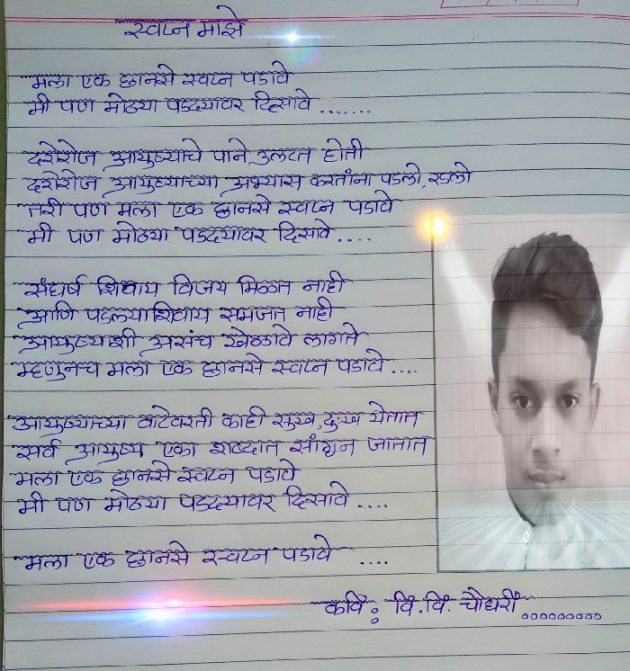 स्वप्न माझे
मला एक छानसे स्वप्न पडावे
मी पण मोठ्या पडद्यावर दिसावे .......
दररोज आयुष्याचे पाने उलटत होती
दररोज आयुष्याच्या अभ्यास करतांना पडलो, रडलो
तरी पण मला एक छानसे स्वप्न पडावे
मी पण मोठ्या पडद्यावर दिसावे ....
संघर्ष शिवाय विजय मिळत नाही
आणि पडल्याशिवाय समजत नाही
आयुष्याशी असंच खेळावे लागते
म्हणुनच मला एक छानसे स्वप्न पडावे ....
आयुष्याच्या वाटेवरती काही सुख, दुःख येतात
सर्व आयुष्य एका शब्दात सांगून जातात
मला एक छानसे स्वप्न पडावे
मी पण मोठ्या पडद्यावर दिसावे ....
मला एक छानसे स्वप्न पडावे ....
कवि : वि. वि. चौधरी